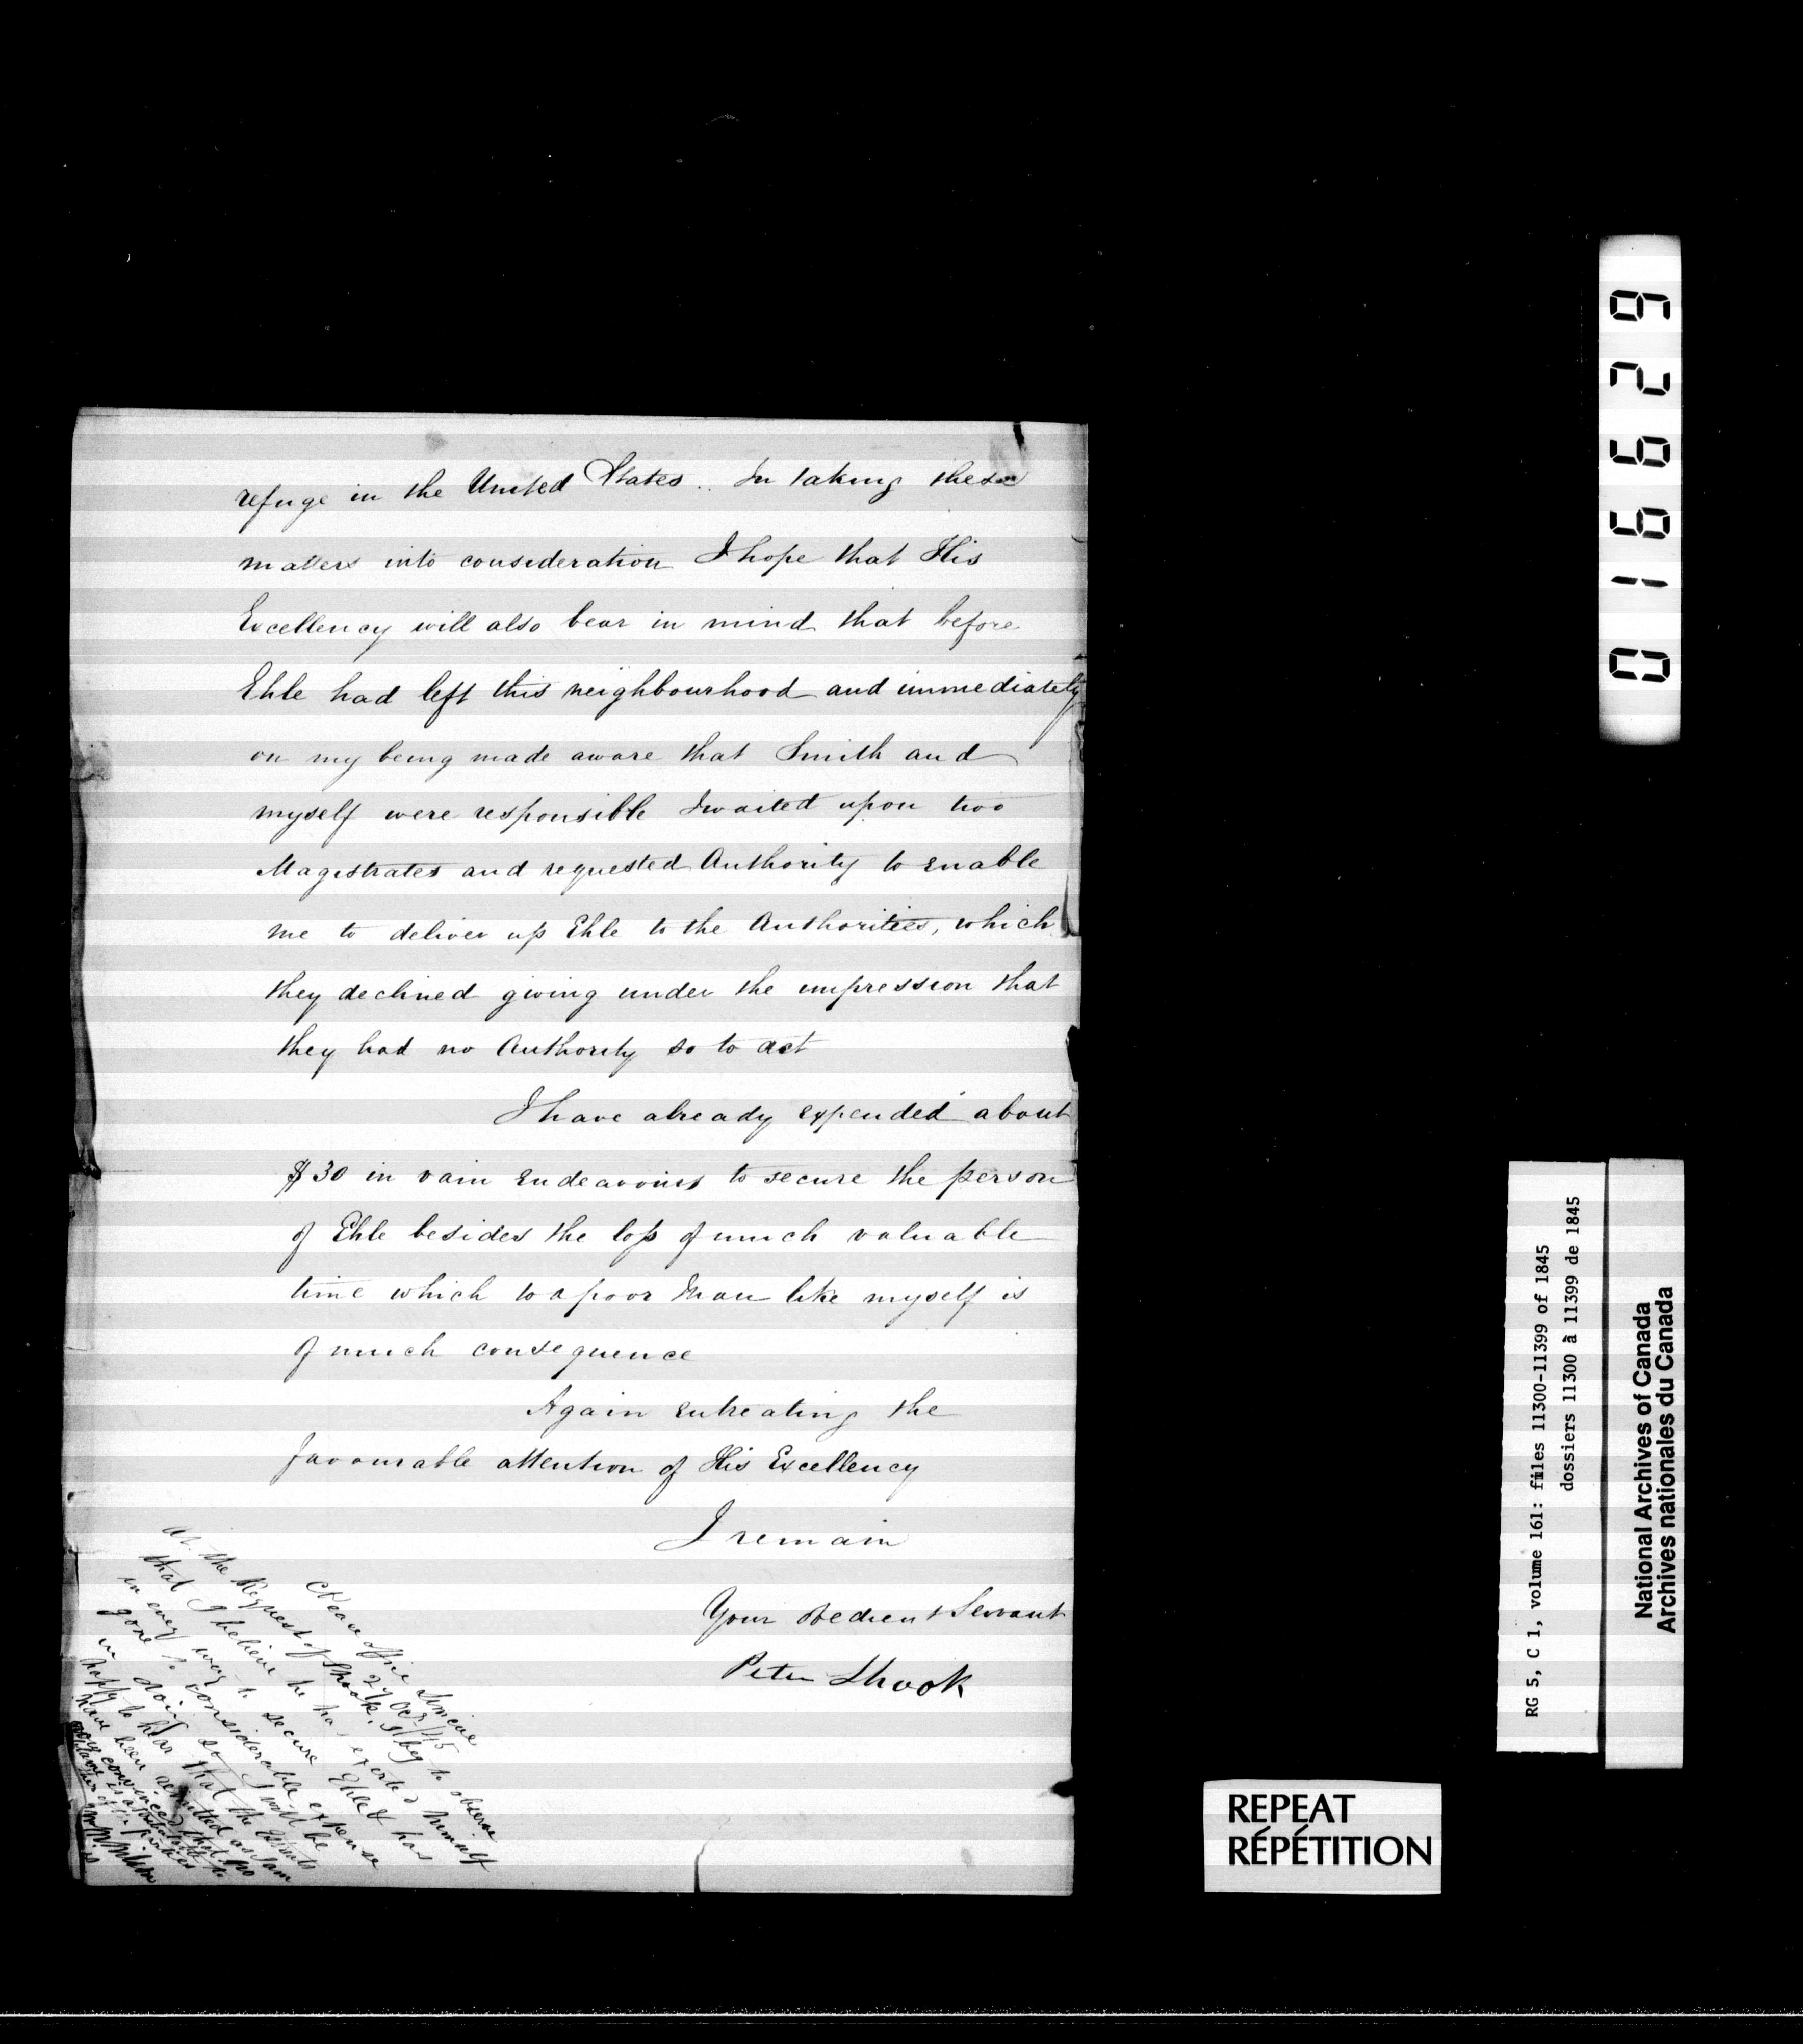 refuge in the United States.. In taking these
matters into consideration I hope that His
Excellency will also bear in mind that before
Ehle had left this neighbourhood and immediately
on my being made aware that Smith and
myself were responsible I waited upon two
Magistrates and requested Authority to enable
me to deliver up Ehle to the Authorities, which
they declined giving under the impression that
they had no Authority so to act
I have already expended about
$30 in vain Endeavours to secure the person
of Ehle besides the loss of much valuable
time which to a poor Man like myself is
of much consequence
Again entreating the
favourable attention of His Excellency
I remain
Your Obedient Servant
Peter Shook
Office Simcoe
27 Oct /45
At the Request of Shook, I beg to observe
that I believe he has exerted himself
in every way to secure Ehle & has
gone to considerable expense
in doing so I will be
happy to hear that the
have been remitted as I am
convinced that no
016629
RG 5, C 1, volume 161: files 11300-11399 of 1845
dossiers 11300 à 11399 de 1845
National Archives of Canada
Archives nationales du Canada
REPEAT
RÉPÉTITION